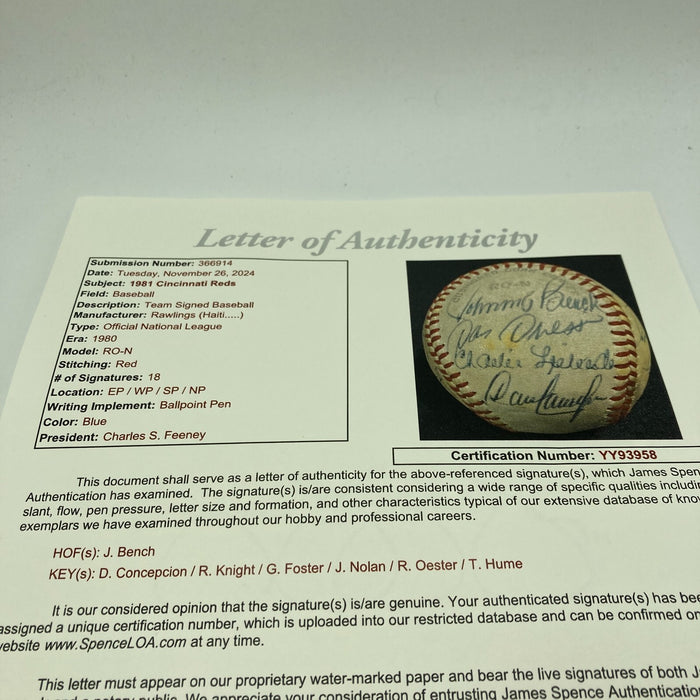 Letter of Authenticity
Submission Number: 366914
Date: Tuesday, November 26, 2024
Subject: 1981 Cincinnati Reds
Field: Baseball
Description: Team Signed Baseball
Manufacturer: Rawlings (Haiti.....)
Type: Official National League
Era: 1980
Model: RO-N
Stitching: Red
# of Signatures: 18
Location: EP / WP / SP / NP
Writing Implement: Ballpoint Pen
Color: Blue
President: Charles S. Feeney
Johnny Bench
Charlie
Certification Number: YY93958
This document shall serve as a letter of authenticity for the above-referenced signature(s), which James Spen
Authentication has examined. The signature(s) is/are consistent considering a wide range of specific qualities includi
slant, flow, pen pressure, letter size and formation, and other characteristics typical of our extensive database of kno
exemplars we have examined throughout our hobby and professional careers.
HOF(s): J. Bench
KEY(s): D. Concepcion / R. Knight / G. Foster / J. Nolan / R. Oester / T. Hume
It is our considered opinion that the signature(s) is/are genuine. Your authenticated signature(s) has bee
assigned a unique certification number, which is uploaded into our restricted database and can be confirmed on
website www.SpenceLOA.com at any time.
This letter must appear on our proprietary water-marked paper and bear the live signatures of both J
and a notary public. We appreciate your consideration of entrusting James Spence Authentication